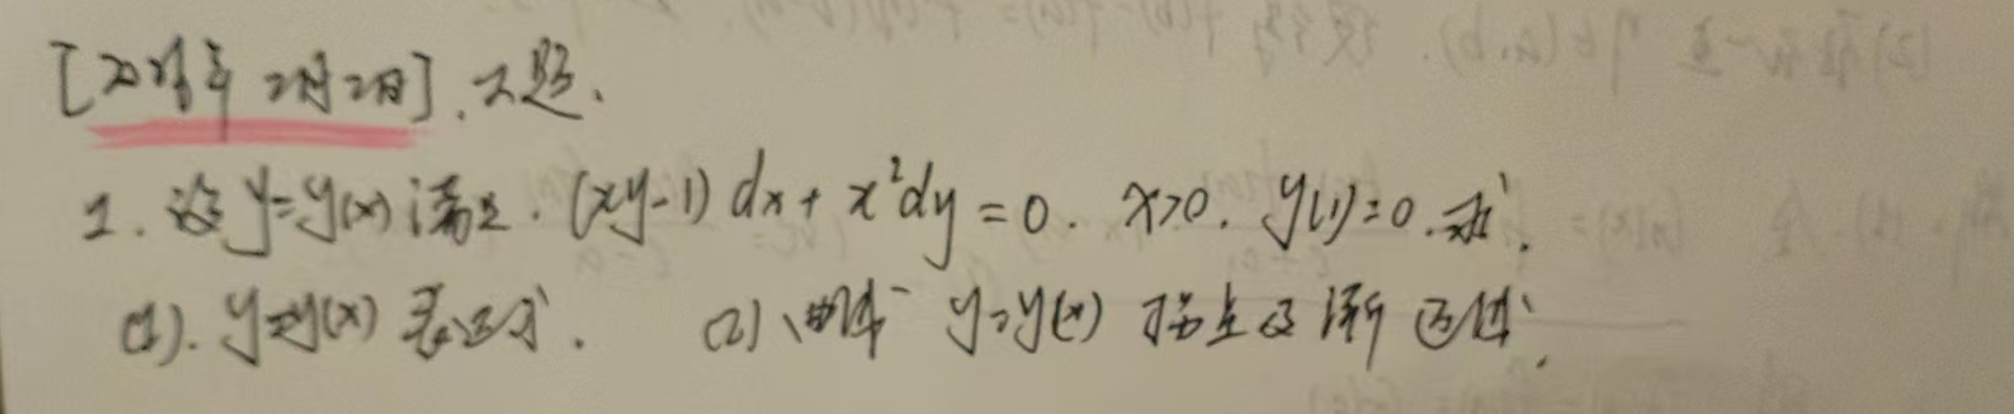 2月2日]. 2题.
1. 设y=y(x)满足. (xy-1)dx+x²dy=0. x>0. y(1)=0.求.
(1). y=y(x)表达式. (2)、曲线 y=y(x) 拐点及渐近线.